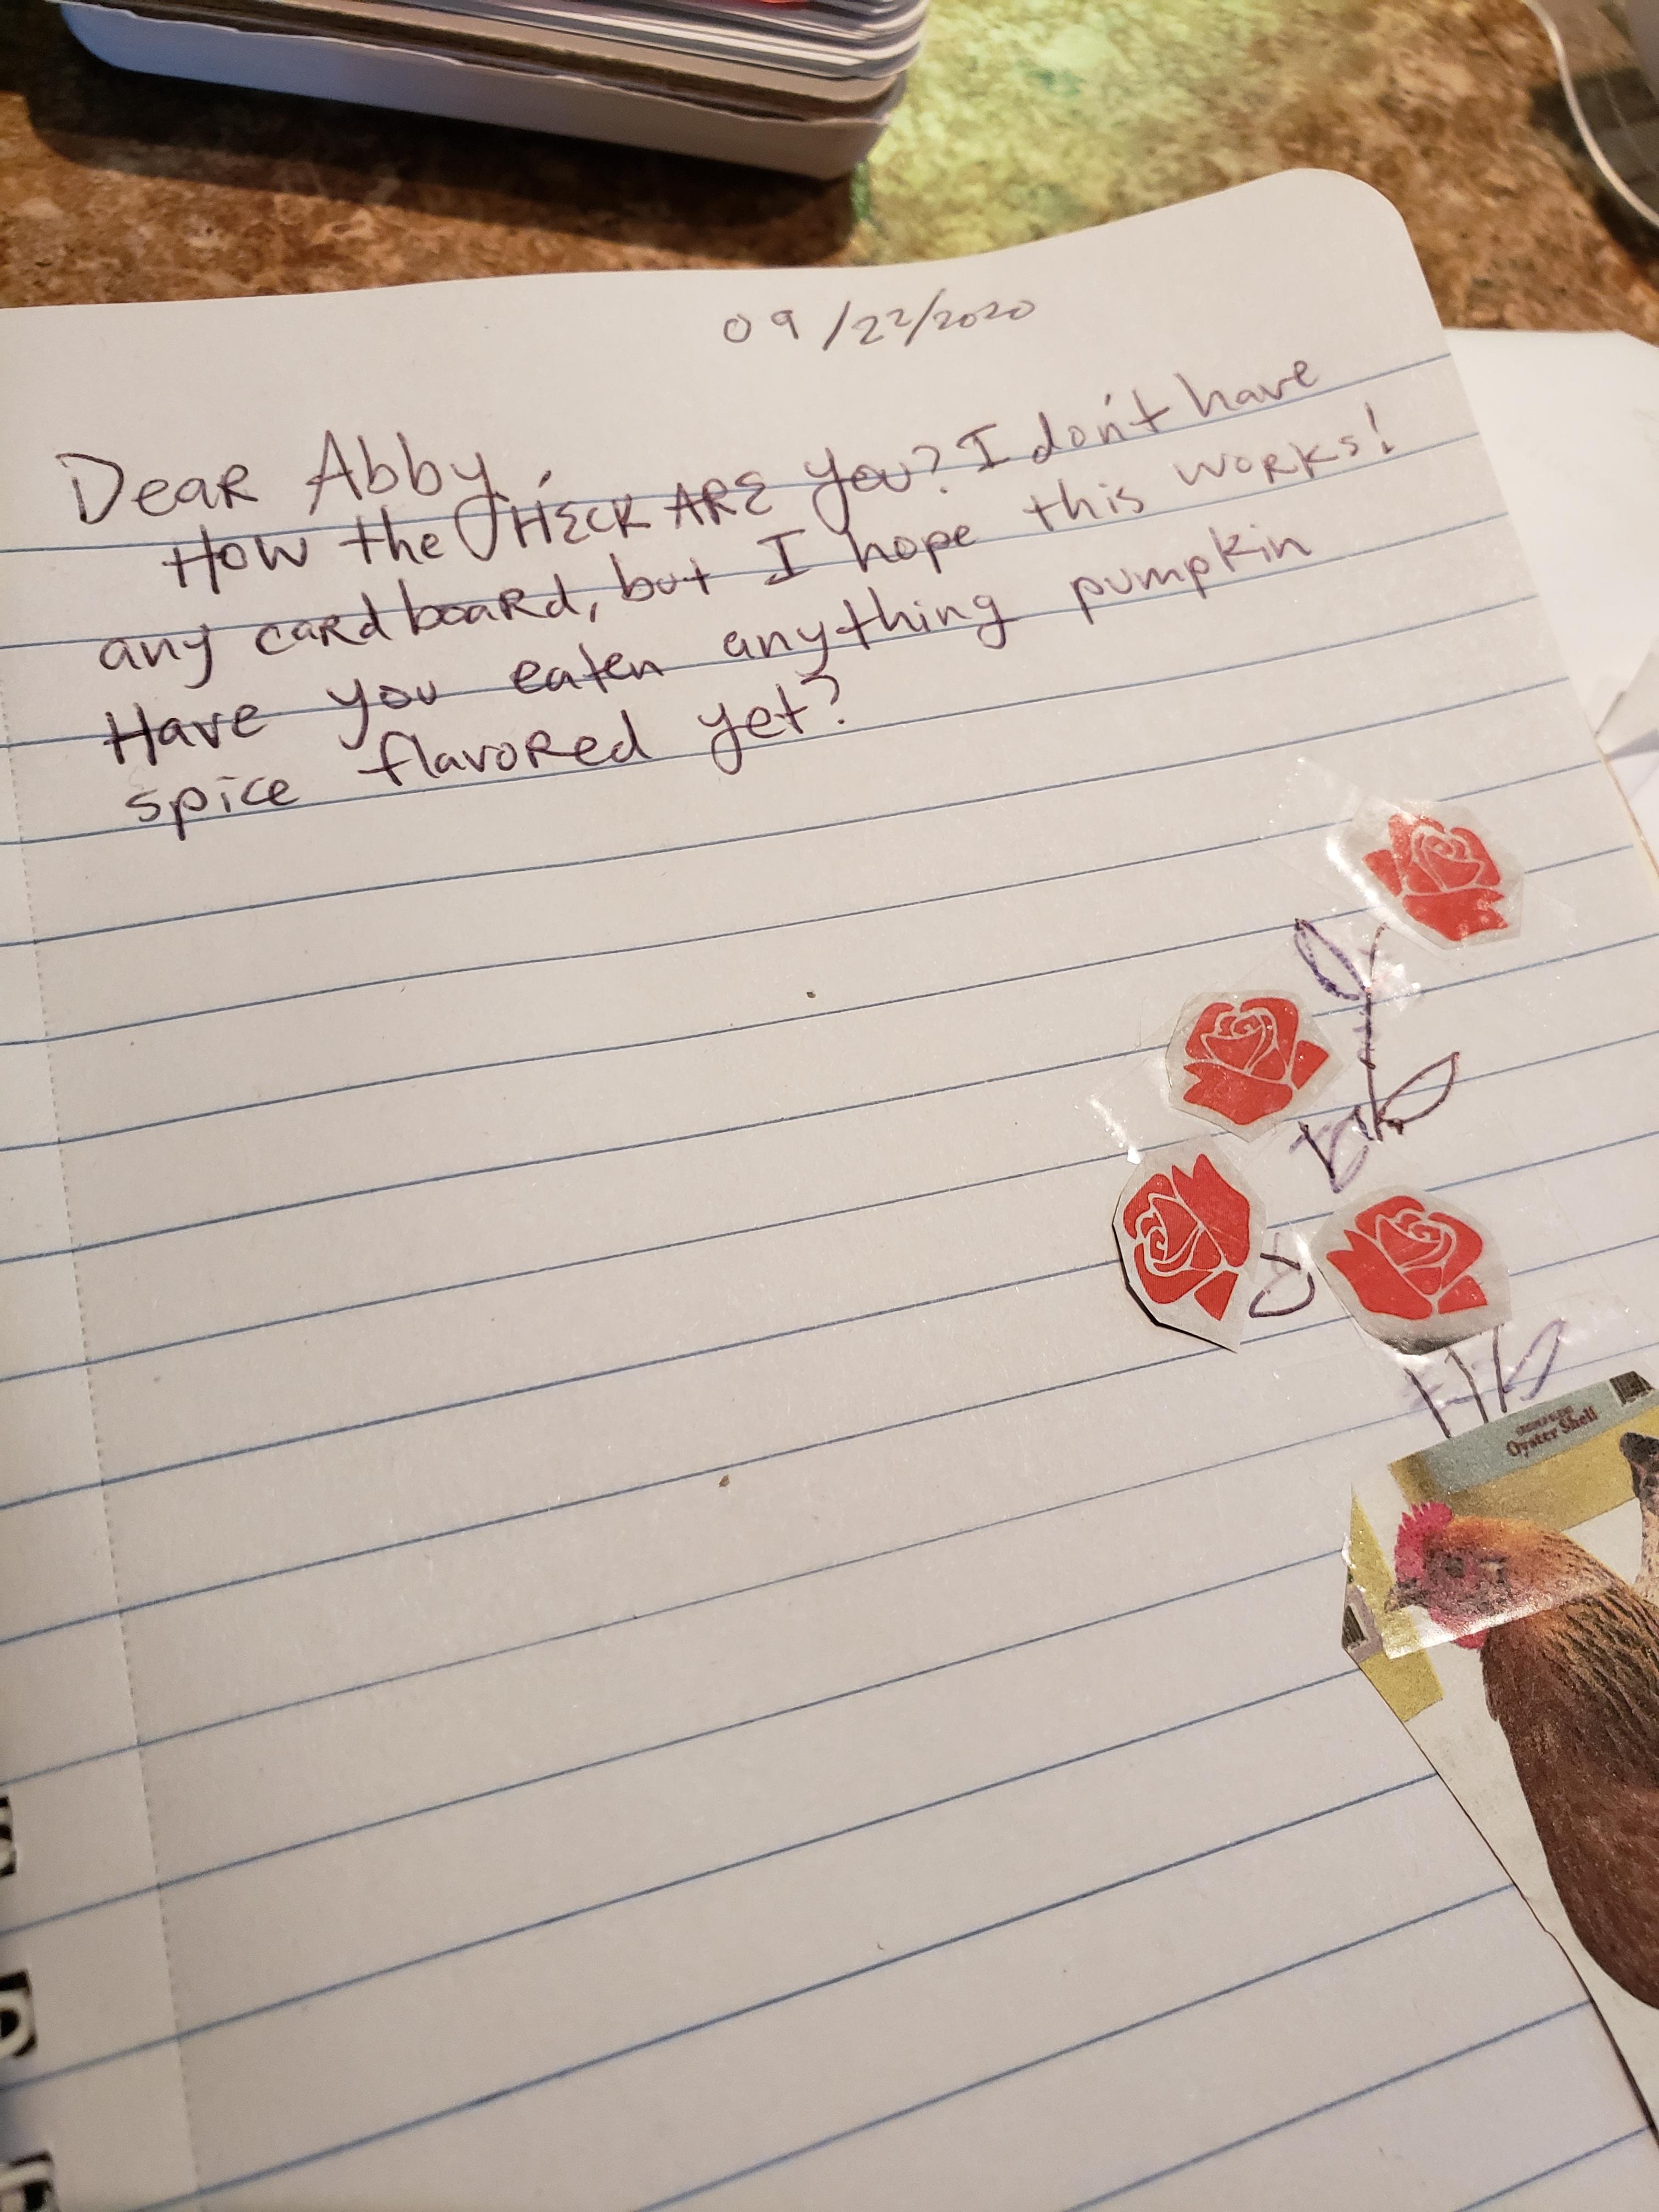 09/22/2020
Dear Abby,
How the HECK ARE you? I don't have
any cardboard, but I hope this works!
Have you eaten anything pumpkin
spice flavored yet?
Oyster Shell